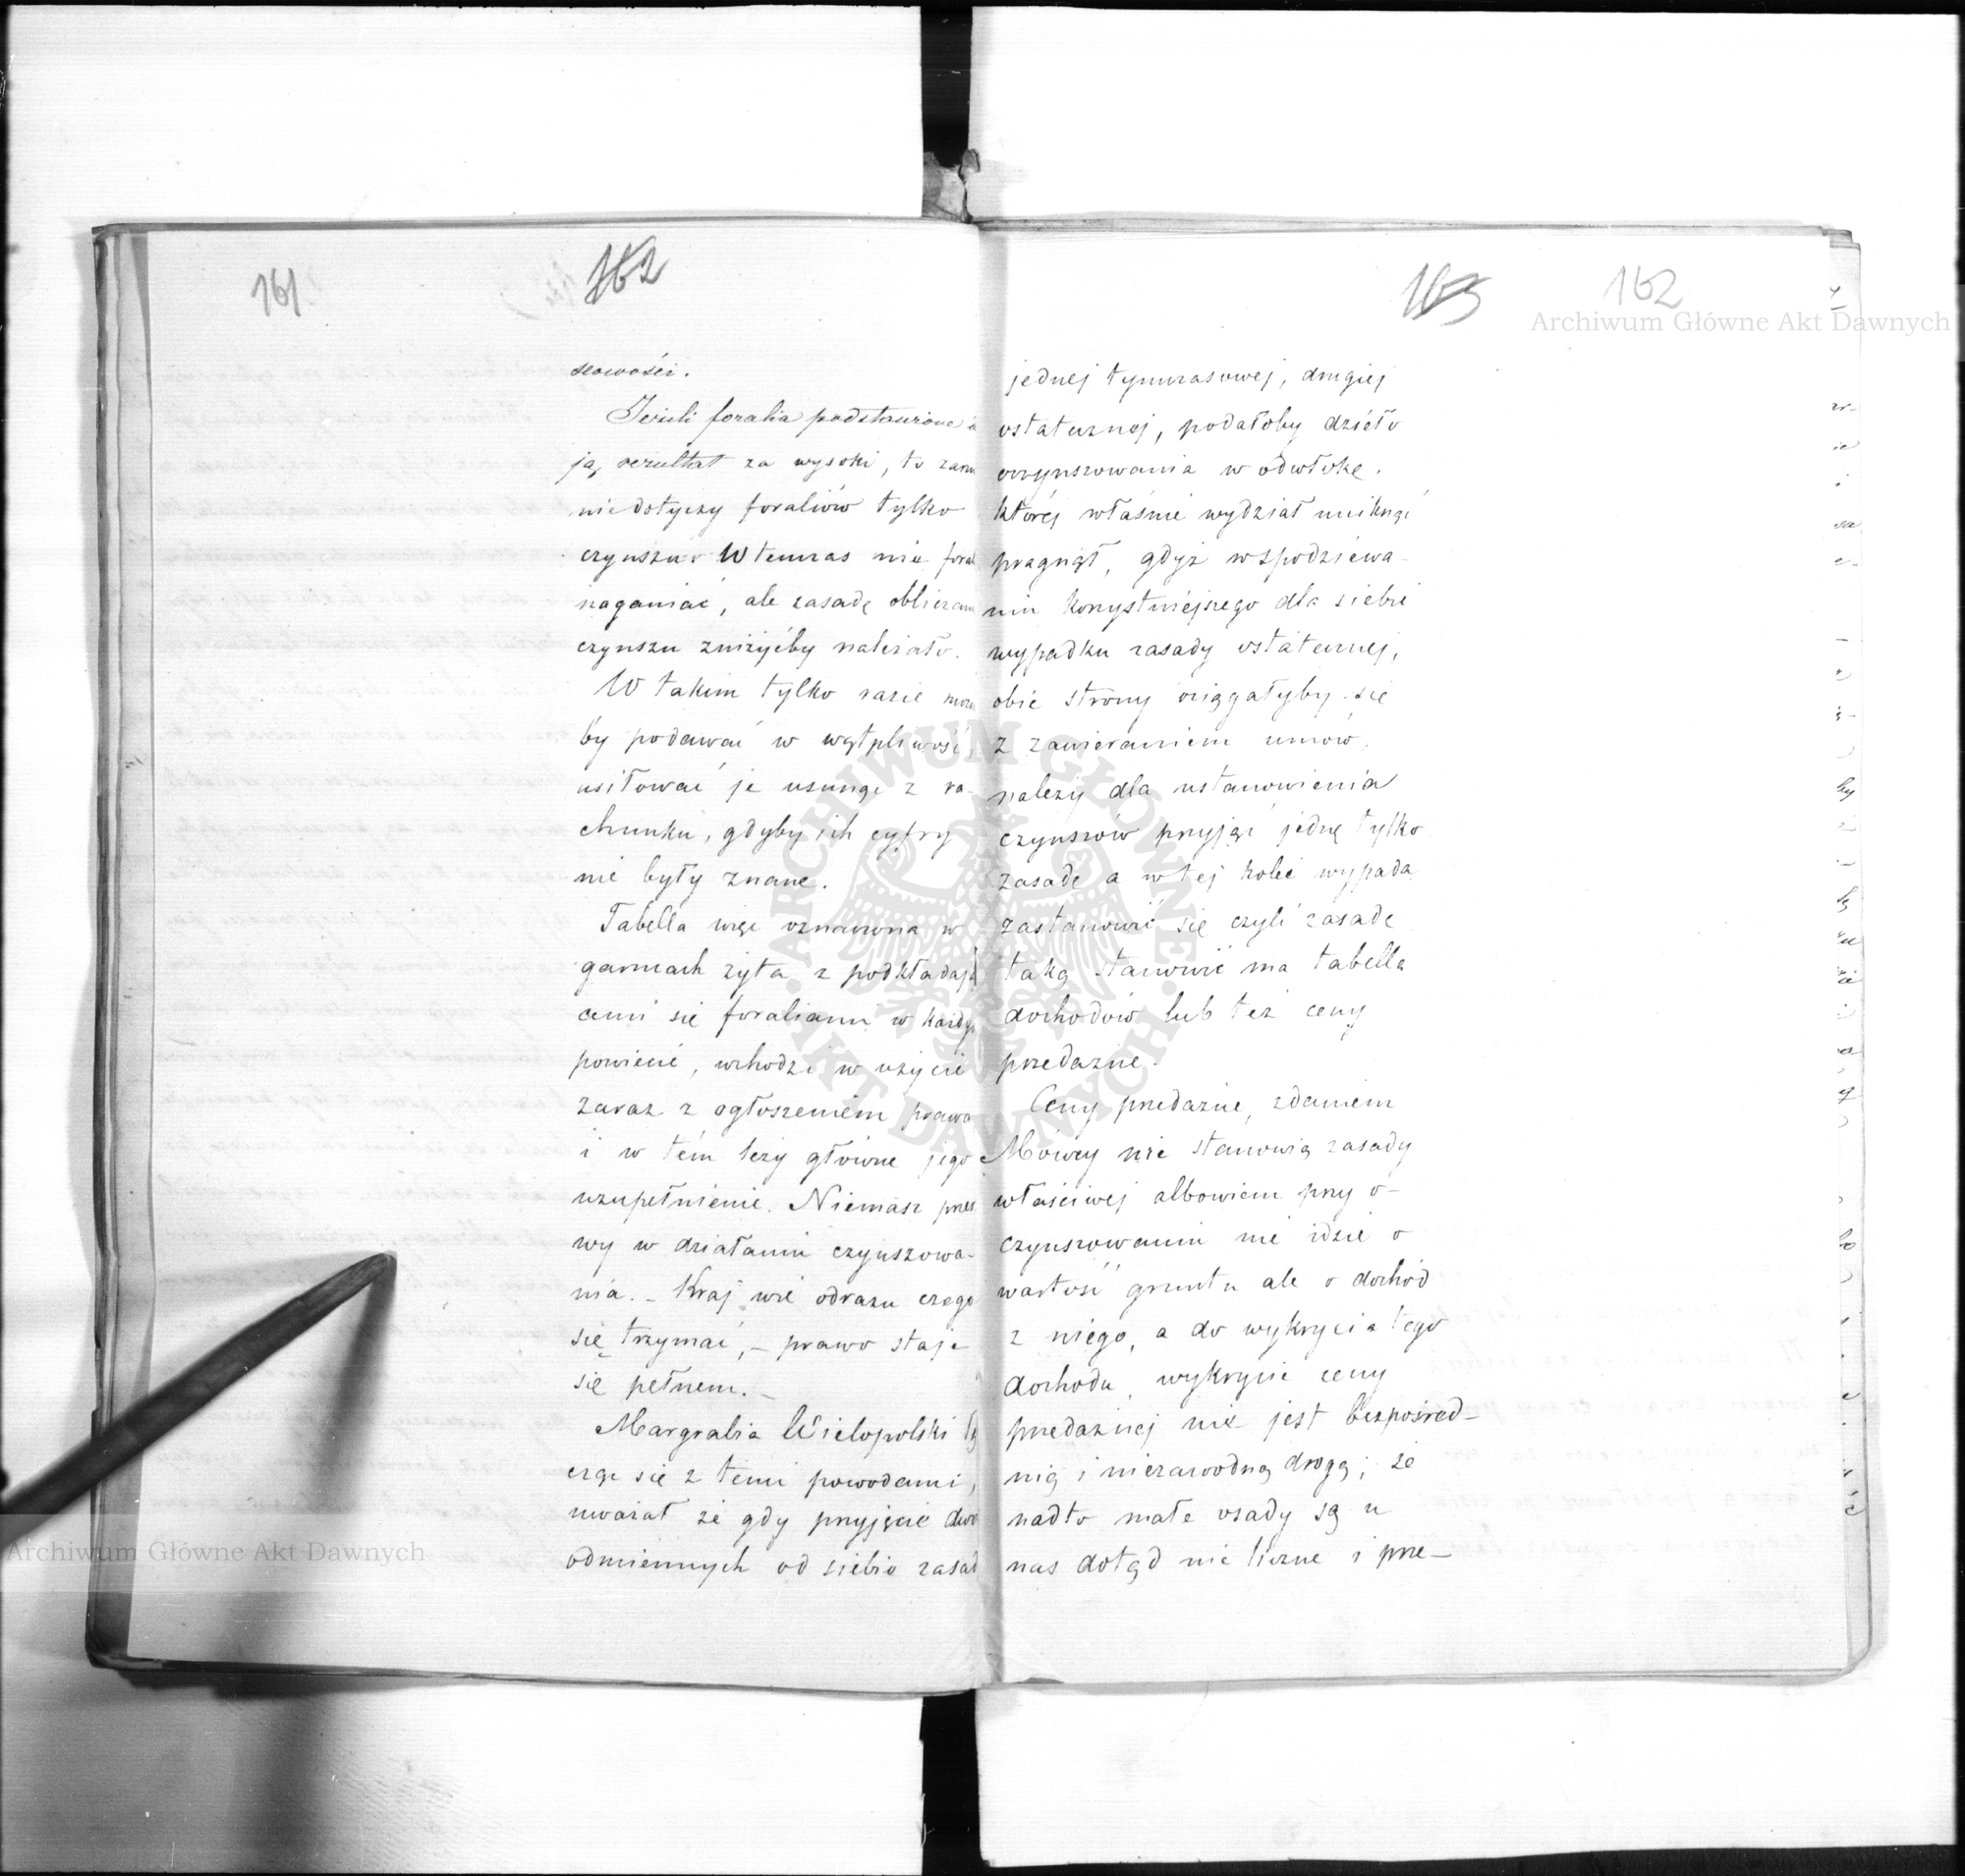 161
162
słowości.
Jeżeli foralia podstawione
ją rezultat za wysoki, to zarzu
niedotyczy foraliów tylko
czynszu. Wtenczas nie foral
naganiać, ale zasadę oblicza
czynszu zniżyćby należało.
W takim tylko razie możn
by podawać w wątpliwość,
usiłować je usunąć z ra-
chunku, gdyby ich cyfry
nie były znane.
Tabella więc oznaczona w
garncach żyta z podkładają
cemi się foraliami w każdy
powiecie, wchodzi w użycie
zaraz z ogłoszeniem prawa
i w tém leży główne jego
uzupełnienie. Niemasz prze
wy w działaniu czynszowa-
nia. – Kraj wie odrazu czego
się trzymać, – prawo staje
się pełnem. –
Margrabia Wielopolski łą
cząc się z temi powodami,
uważał że gdy przyjęcie dwó
odmiennych od siebie zasad
163 162
jednej tymczasowej, drugiej
ostatecznej, podałoby dzieło
oczynszowania w odwłokę.
której właśnie wydział uniknąć
pragnął, gdyż wspodziewa-
niu korzystniejszego dla siebie
wypadku zasady ostatecznej,
obie strony ociągałyby się
z zawieraniem umów,
należy dla ustanowienia
czynszów przyjąć jednę tylko
zasadę a w tej kolei wypada
zastanowić się czyli zasadę
taką stanowić ma tabella
dochodów lub też ceny
przedażne.
Ceny przedażne, zdaniem
Mówcy nie stanowią zasady
właściwej albowiem przy o-
czynszowaniu nie idzie o
wartość gruntu ale o dochód
z niego, a do wykrycia tego
dochodu, wykrycie ceny
przedażnej nie jest bezpośred-
nią i niezawodną drogą; że
nadto małe osady są u
nas dotąd nie liczne i prze-
Archiwum Główne Akt Dawnych
Archiwum Główne Akt Dawnych
ARCHIWUM GŁÓWNE
AKT DAWNYCH